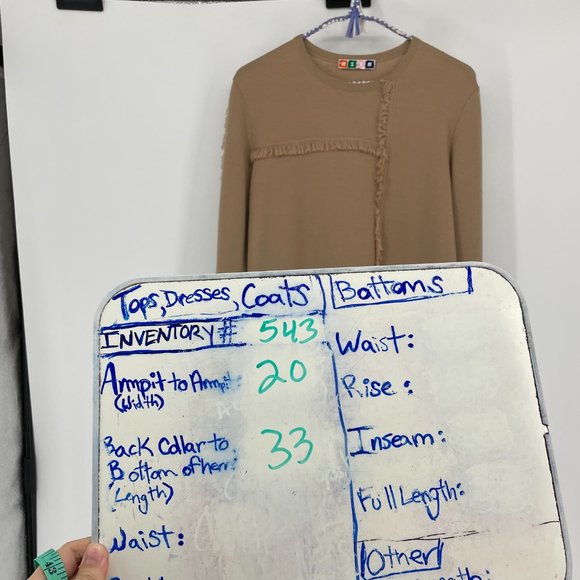 Tops, Dresses, Coats
INVENTORY # 543
Armpit to Armpit: 20
(Width)
Back Collar to
Bottom of hem: 33
(Length)
Waist:
Bottoms
Waist:
Rise:
Inseam:
Full Length:
Other